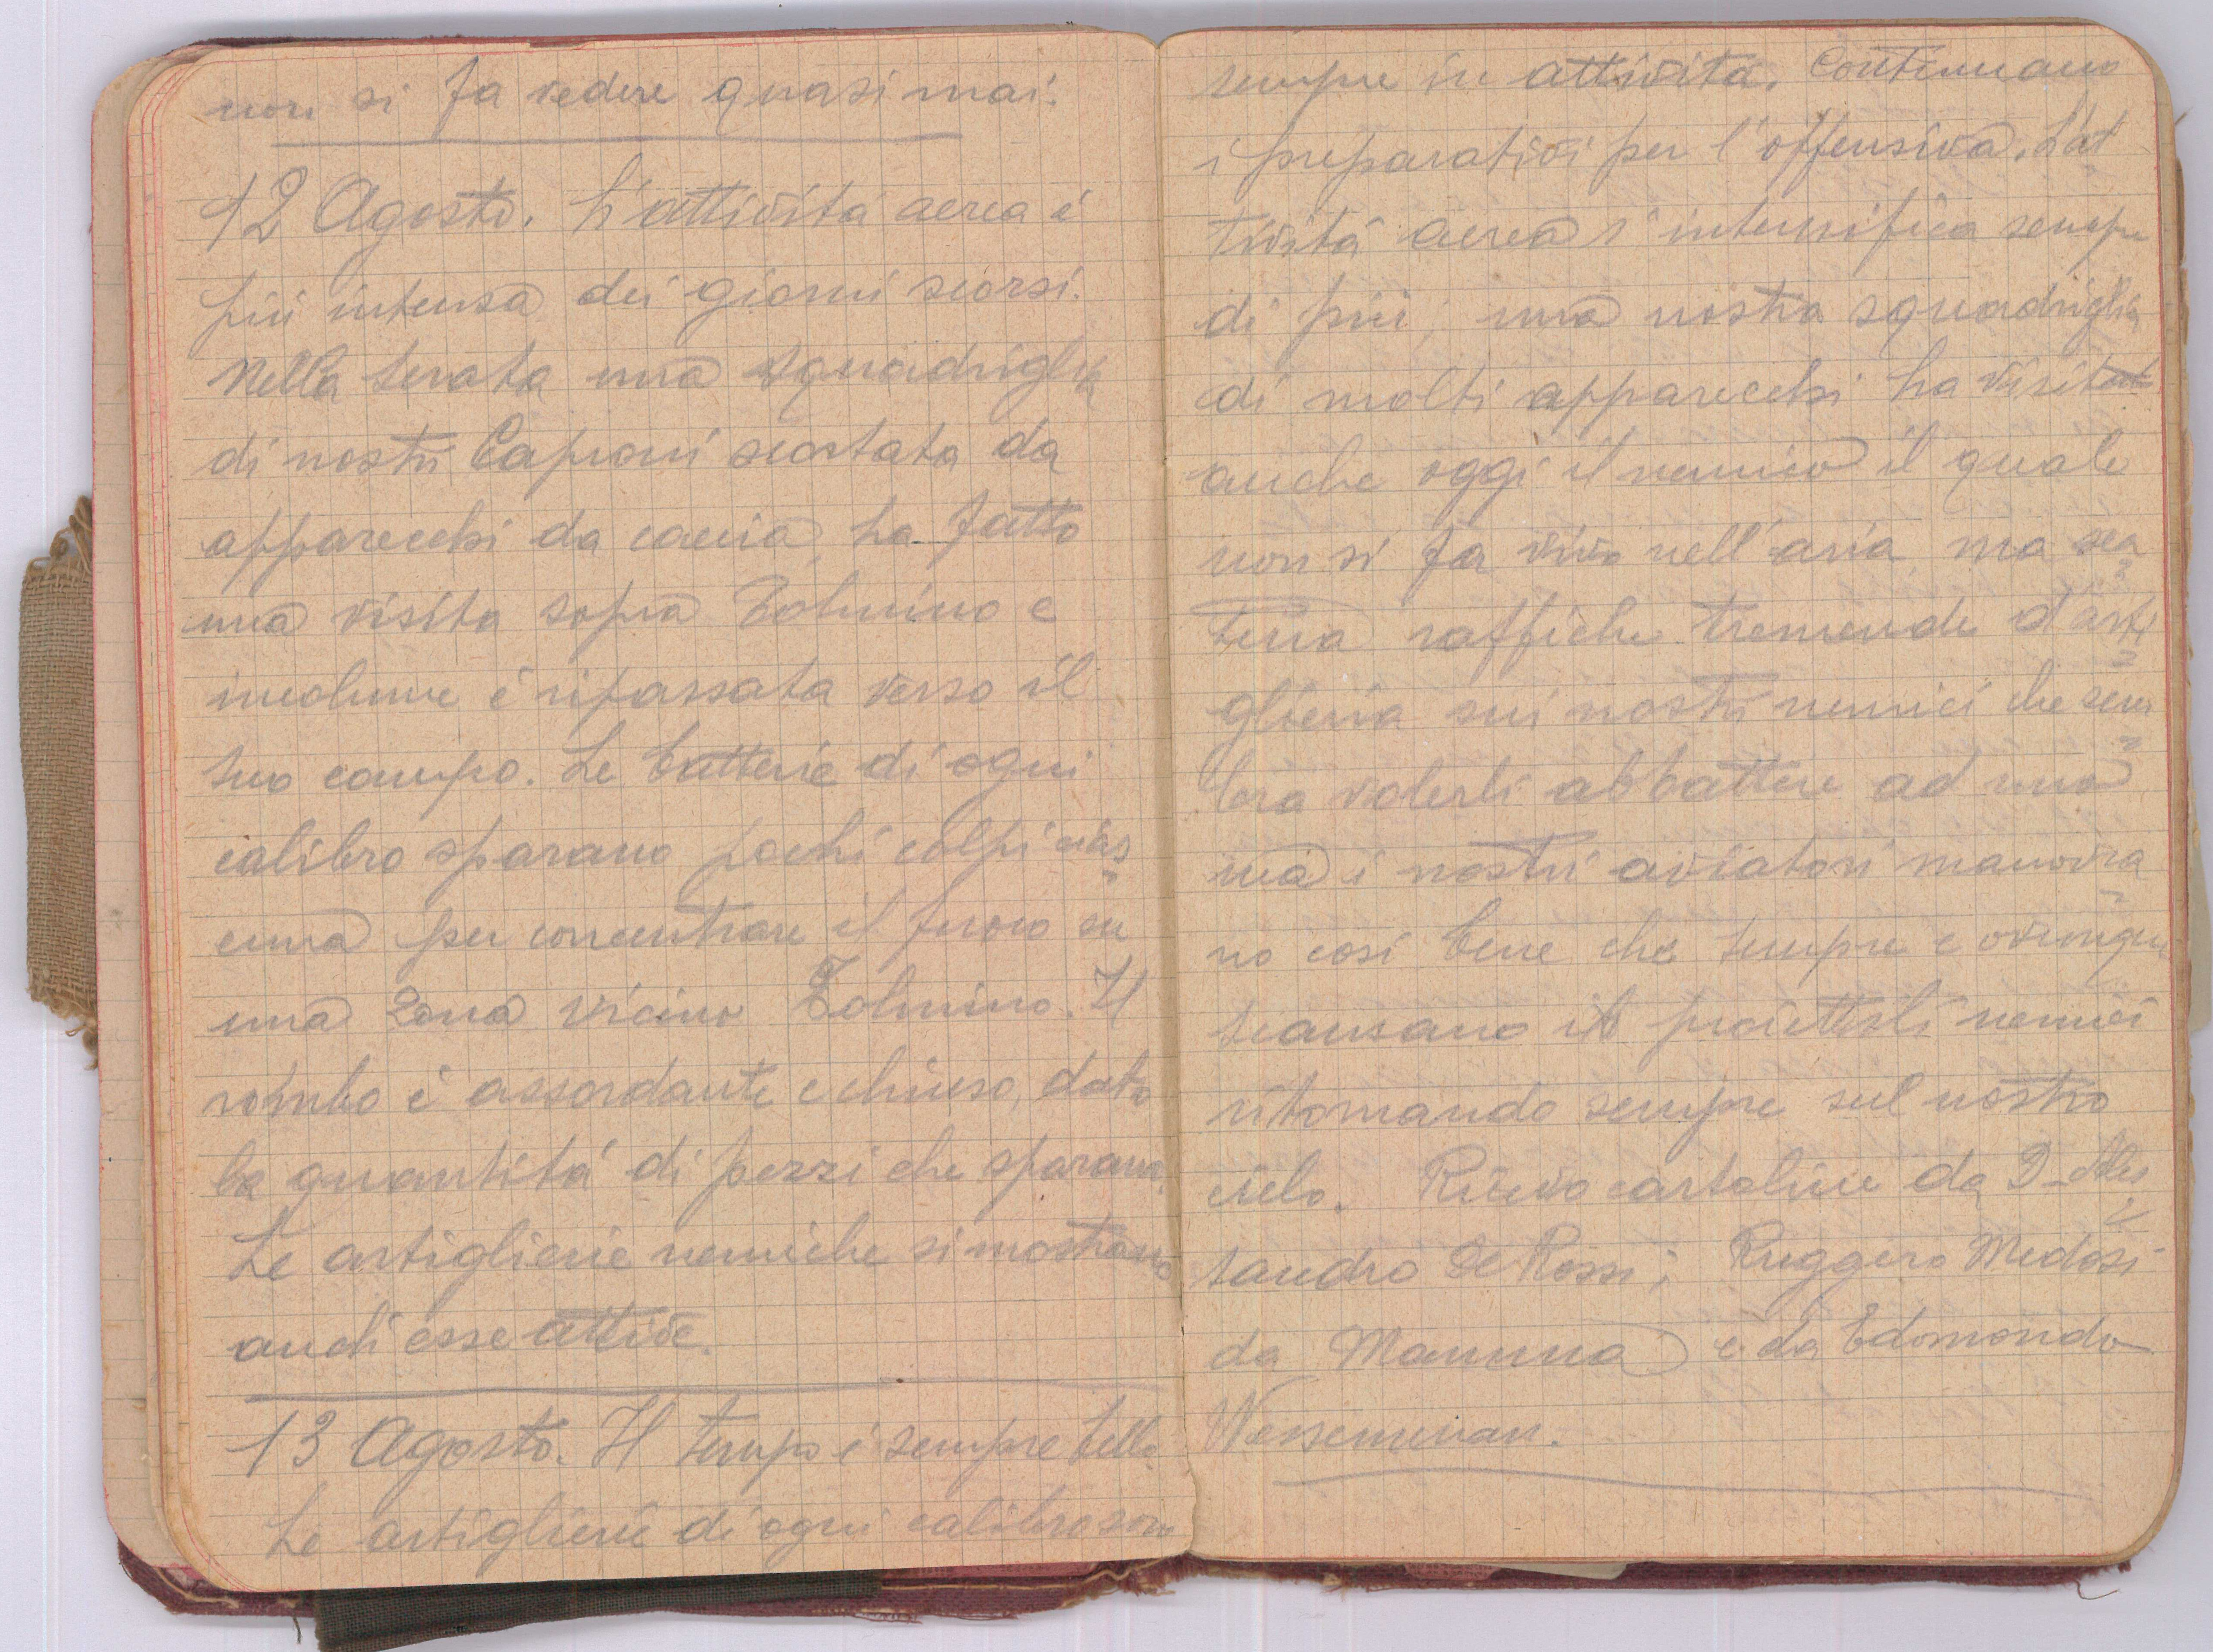 non si fa vedere quasi mai.
12 Agosto. L'attivitá aerea é
piú intensa dei giorni scorsi.
Nella serata una squadriglia
di nostri Caproni scortata da
apparecchi da caccia, ha fatto
una visita sopra Tolmino e
incolume é ripassata verso il
suo campo. Le batterie di ogni
calibro sparano pochi colpi cias=
cuna per concentrare il fuoco su
una zona vicino Tolmino. Il
rombo é assordante e chiuso, data
la quantitá di pezzi che sparano.
Le artiglierie nemiche si mostrano
anch'esse attive.
13 Agosto. Il tempo é sempre bello.
Le artiglierie di ogni calibro sono
sempre in attivitá. Continuano
i preparativi per l'offensiva. L'at
tivitá aerea s'intensifica sempre
di piú; una nostra squadriglia
di molti apparecchi ha visitato
anche oggi il nemico il quale
non si fa vivo nell'aria, ma
terra raffiche tremende d'arti=
glieria sui nostri nemici che sem=
bra volerli abbattere ad uno
ma i nostri aviatori manovra=
no cosi bene che sempre e ovunque
scansano i proiettili nemici
ritornando sempre sul nostro
cielo. Ricevo cartoline da D. Ales=
sandro De Rossi; Ruggero Medosi
da Mamma e da Edomondo